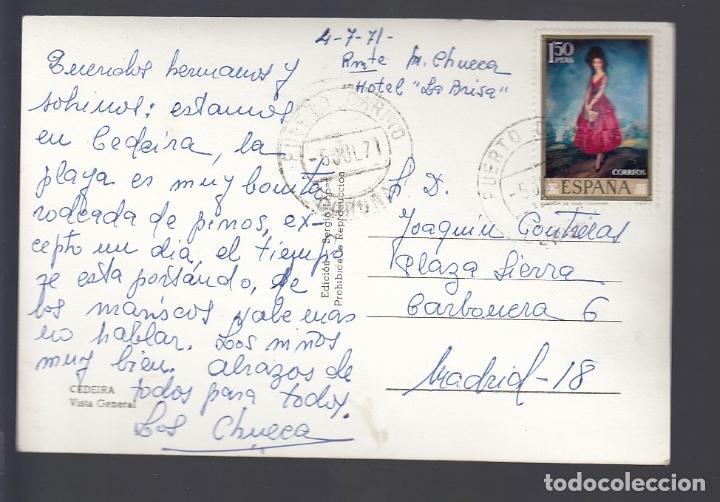 4-7-71-
Rmte M. Chueca
Hotel "La Brisa"
Queridos hermanos y
sobinos: estamos
en Cedeira, la
playa es muy bonita
rodeada de pinos, ex-
cepto un dia, el tiempo
se esta portando, de
los mariscos
no hablar. Los niños
muy bien. abrazos de
todos para todos.
Los Chueca
CEDEIRA
Vista General
Edición Sergio
Prohibida la Reproducción
PUERTO CARIÑO
-6 JUL. 71
CORUÑA
1,50
PTAS
CORREOS
ESPAÑA
PUERTO
S. D.
Joaquín Contreras
Plaza Sierra
Carbonera 6
Madrid-18
todocoleccion